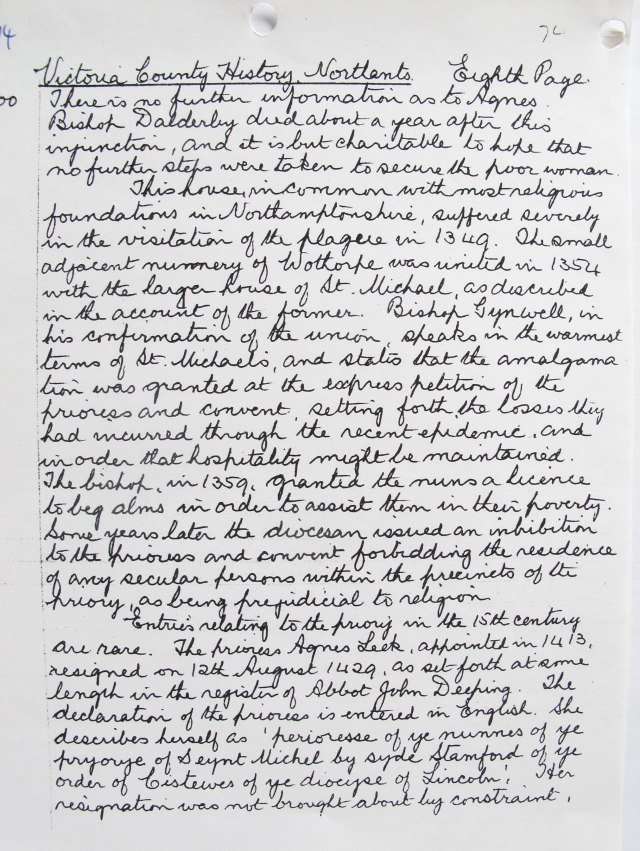 74
Victoria County History, Northants. Eighth Page.
There is no further information as to Agnes.
Bishop Dalderby died about a year after this
injunction, and it is but charitable to hope that
no further steps were taken to secure the poor woman.
This house, in common with most religious
foundations in Northamptonshire, suffered severely
in the visitation of the plague in 1349. The small
adjacent nunnery of Wothorpe was united in 1354
with the larger house of St. Michael, as described
in the account of the former. Bishop Gynwell, in
his confirmation of the union, speaks in the warmest
terms of St. Michael's, and states that the amalgama
tion was granted at the express petition of the
prioress and convent, setting forth the losses they
had incurred through the recent epidemic, and
in order that hospitality might be maintained.
The bishop, in 1359, granted the nuns a licence
to beg alms in order to assist them in their poverty.
Some years later the diocesan issued an inhibition
to the prioress and convent forbidding the residence
of any secular persons within the precincts of the
priory, as being prejudicial to religion
Entries relating to the priory in the 15th century
are rare. The prioress Agnes Leek, appointed in 1413,
resigned on 12th August 1429, as set forth at some
length in the register of Abbot John Deeping. The
declaration of the prioress is entered in English. She
describes herself as 'perioresse of ye nunnes of ye
pryorye of Seynt Michel by syde Stamford of ye
order of Cistewes of ye diocyse of Lincoln'. Her
resignation was not brought about by constraint,